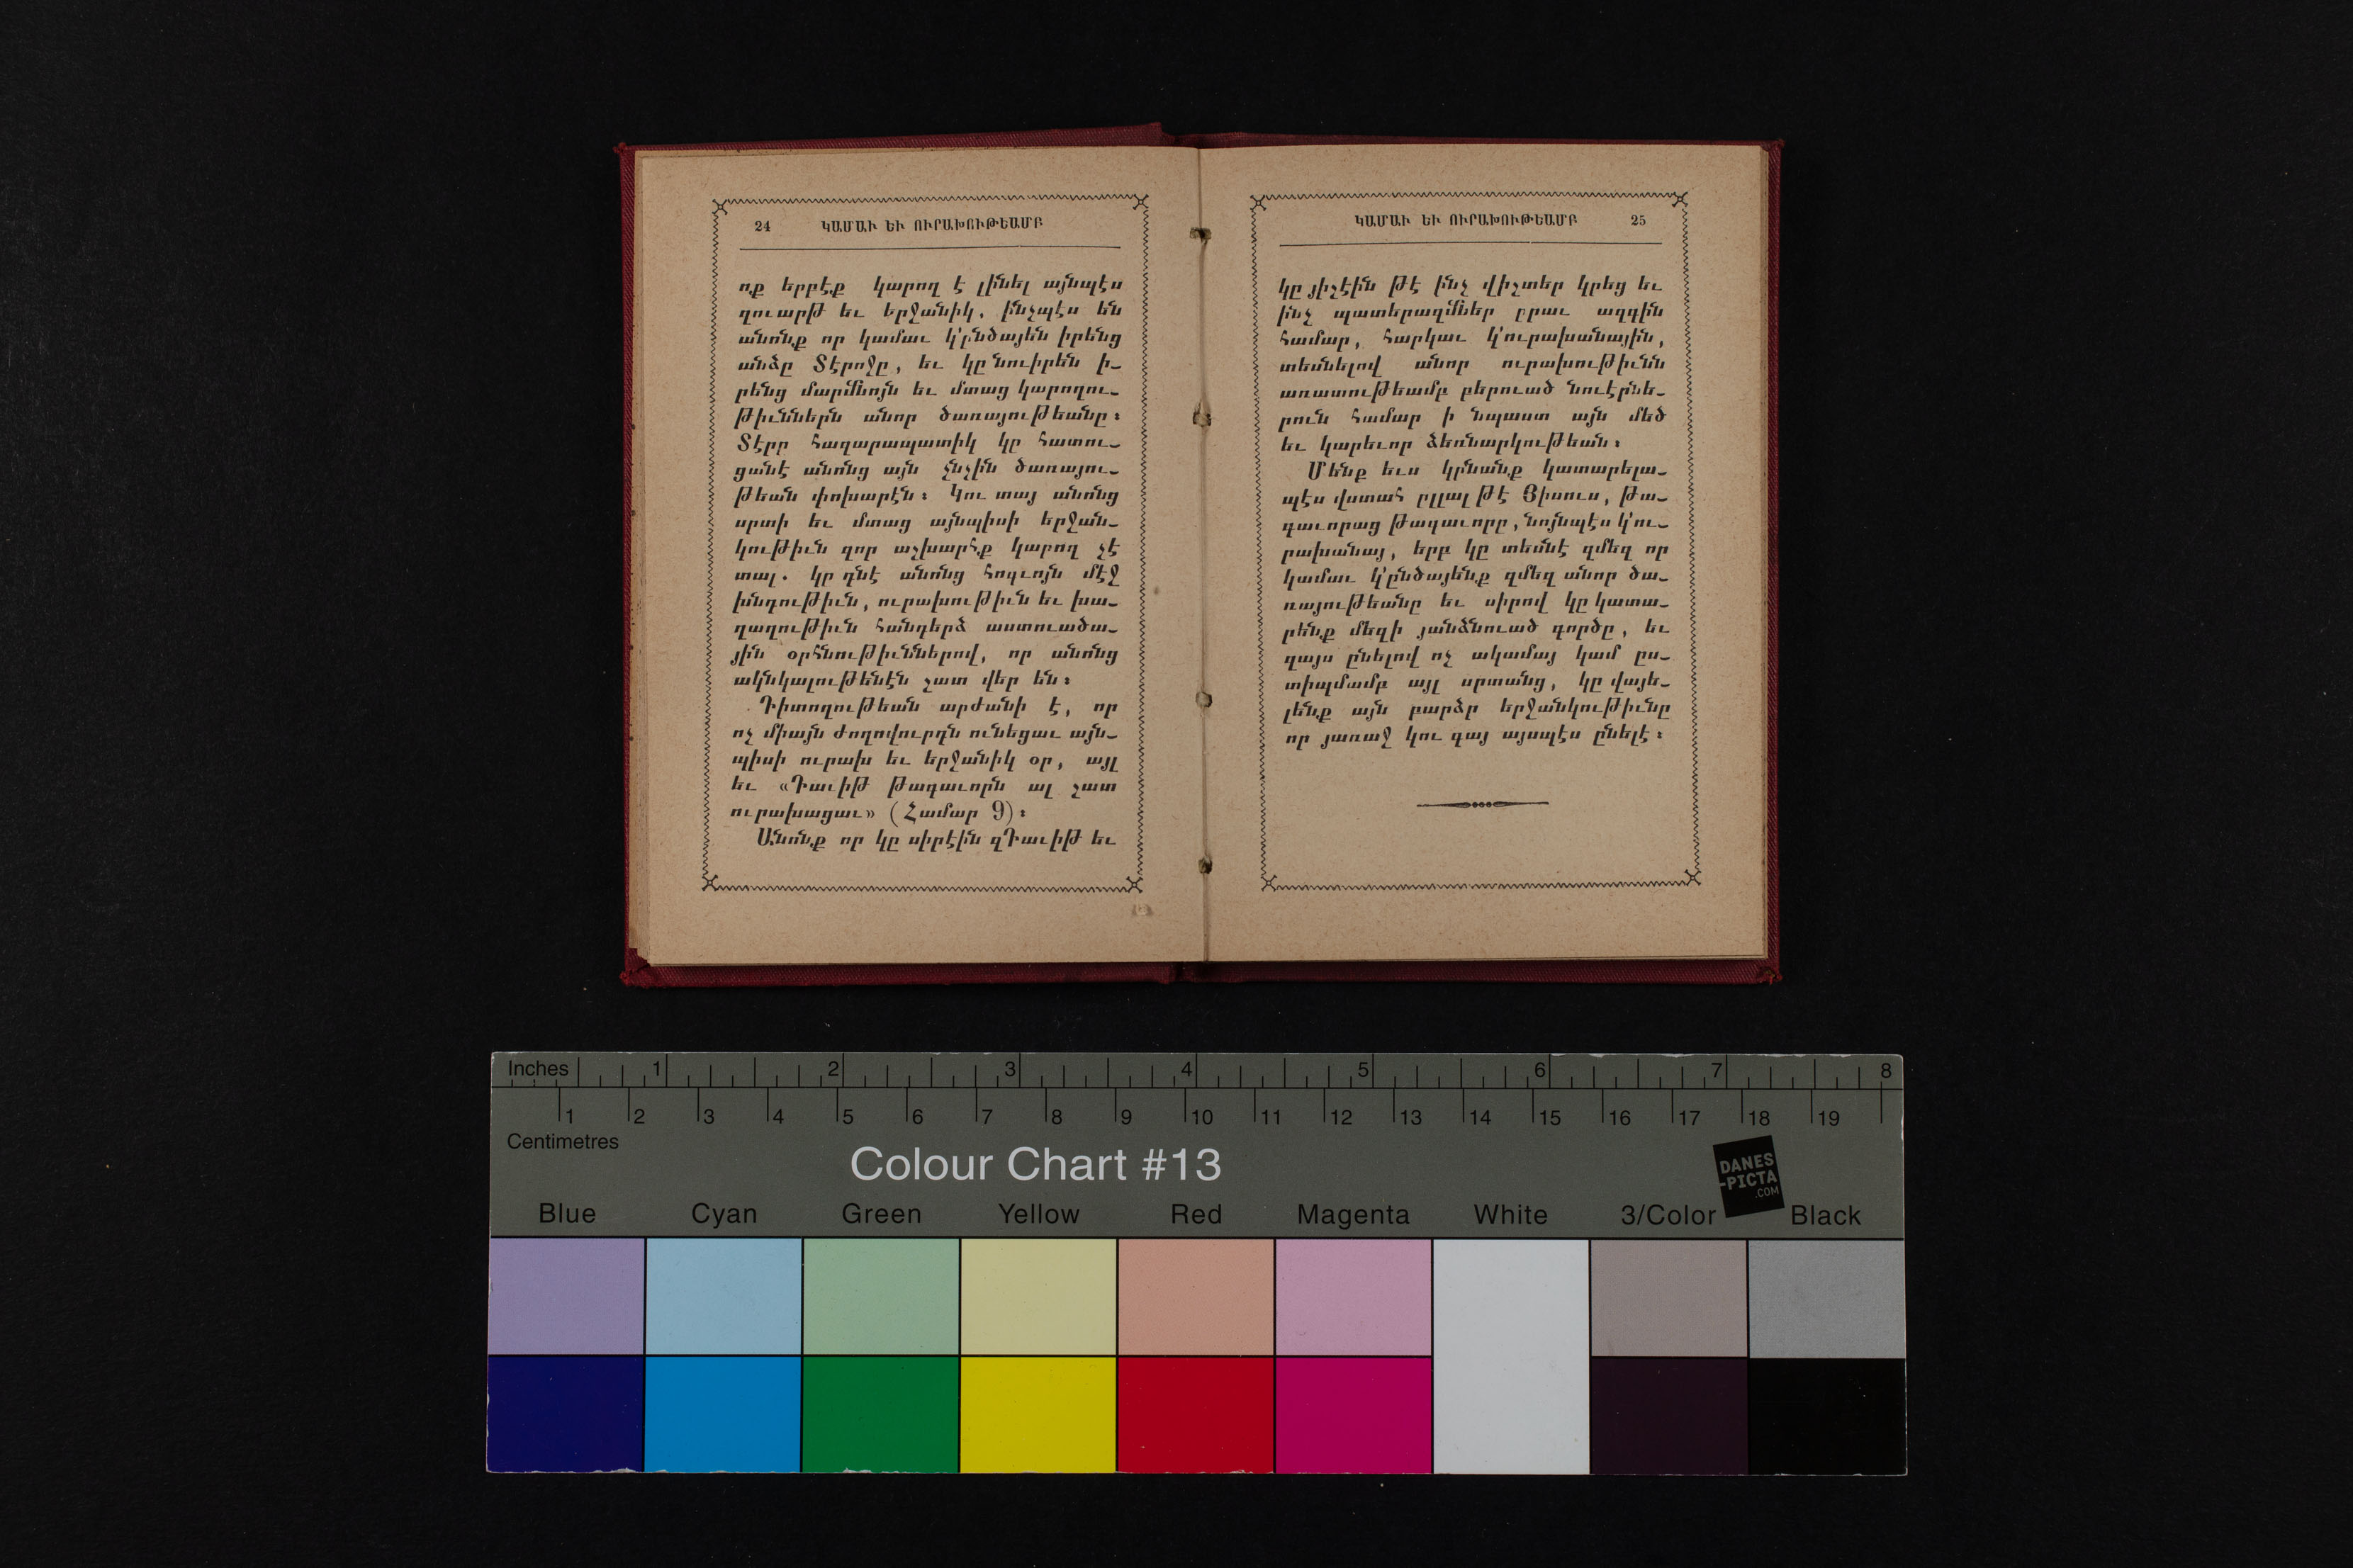 24 ԿԱՄԱՒ ԵՒ ՈՒՐԱԽՈՒԹԵԱՄԲ
ոք երբէք կարող է լինել այնպէս
զուարթ եւ երջանիկ, ինչպէս են
անոնք որ կամաւ կ՚ընծայեն իրենց
անձը Տէրոջը, եւ կը նուիրեն ի֊
րենց մարմնոյն եւ մտաց կարողու֊
թիւններն անոր ծառայութեանը։
Տէրը հաղարապատիկ կը հատու֊
ցանէ անոնց այն չնչին ծառայու֊
թեան փոխարէն։ Կու տայ անոնց
սրտի եւ մտաց այնպիսի երջան֊
կութիւն զոր աշխարհք կարող չէ
տալ. կը դնէ անոնց հոգւոյն մէջ
խնդութիւն, ուրախութիւն եւ խա֊
ղաղութիւն հանդերձ աստուածա֊
յին օրհնութիւններով, որ անոնց
ակնկալութենէն շատ վեր են։
Դիտողութեան արժանի է, որ
ոչ միայն ժողովուրդն ունեցաւ այն֊
պիսի ուրախ եւ երջանիկ օր, այլ
եւ «Դաւիթ թագաւորն ալ շատ
ուրախացաւ» (Համար 9)։
Անոնք որ կը սիրէին զԴաւիթ եւ
ԿԱՄԱՒ ԵՒ ՈՒՐԱԽՈՒԹԵԱՄԲ 25
կը յիշէին թէ ինչ վիշտեր կրեց եւ
ինչ պատերազմներ ըրաւ ազգին
համար, հարկաւ կ՚ուրախանային,
տեսնելով անոր ուրախութիւնն
առատութեամբ բերուած նուէրնե֊
րուն համար ի նպաստ այն մեծ
եւ կարեւոր ձեռնարկութեան։
Մենք եւս կրնանք կատարելա֊
պէս վստահ ըլլալ թէ Յիսուս, թա֊
գաւորաց թագաւորը, նոյնպէս կ՚ու֊
րախանայ, երբ կը տեսնէ զմեզ որ
կամաւ կ՚ընծայենք զմեզ անոր ծա֊
ռայութեանը եւ սիրով կը կատա֊
րենք մեզի յանձնուած գործը, եւ
զայս ընելով ոչ ակամայ կամ ըս֊
տիպմամբ այլ սրտանց, կը վայե֊
լենք այն բարձր երջանկութիւնը
որ յառաջ կու գայ այսպէս ընելէ։
Inches 1 2 3 4 5 6 7 8
1 2 3 4 5 6 7 8 9 10 11 12 13 14 15 16 17 18 19
Centimetres
Colour Chart #13
DANES
-PICTA
.COM
Blue Cyan Green Yellow Red Magenta White 3/Color Black